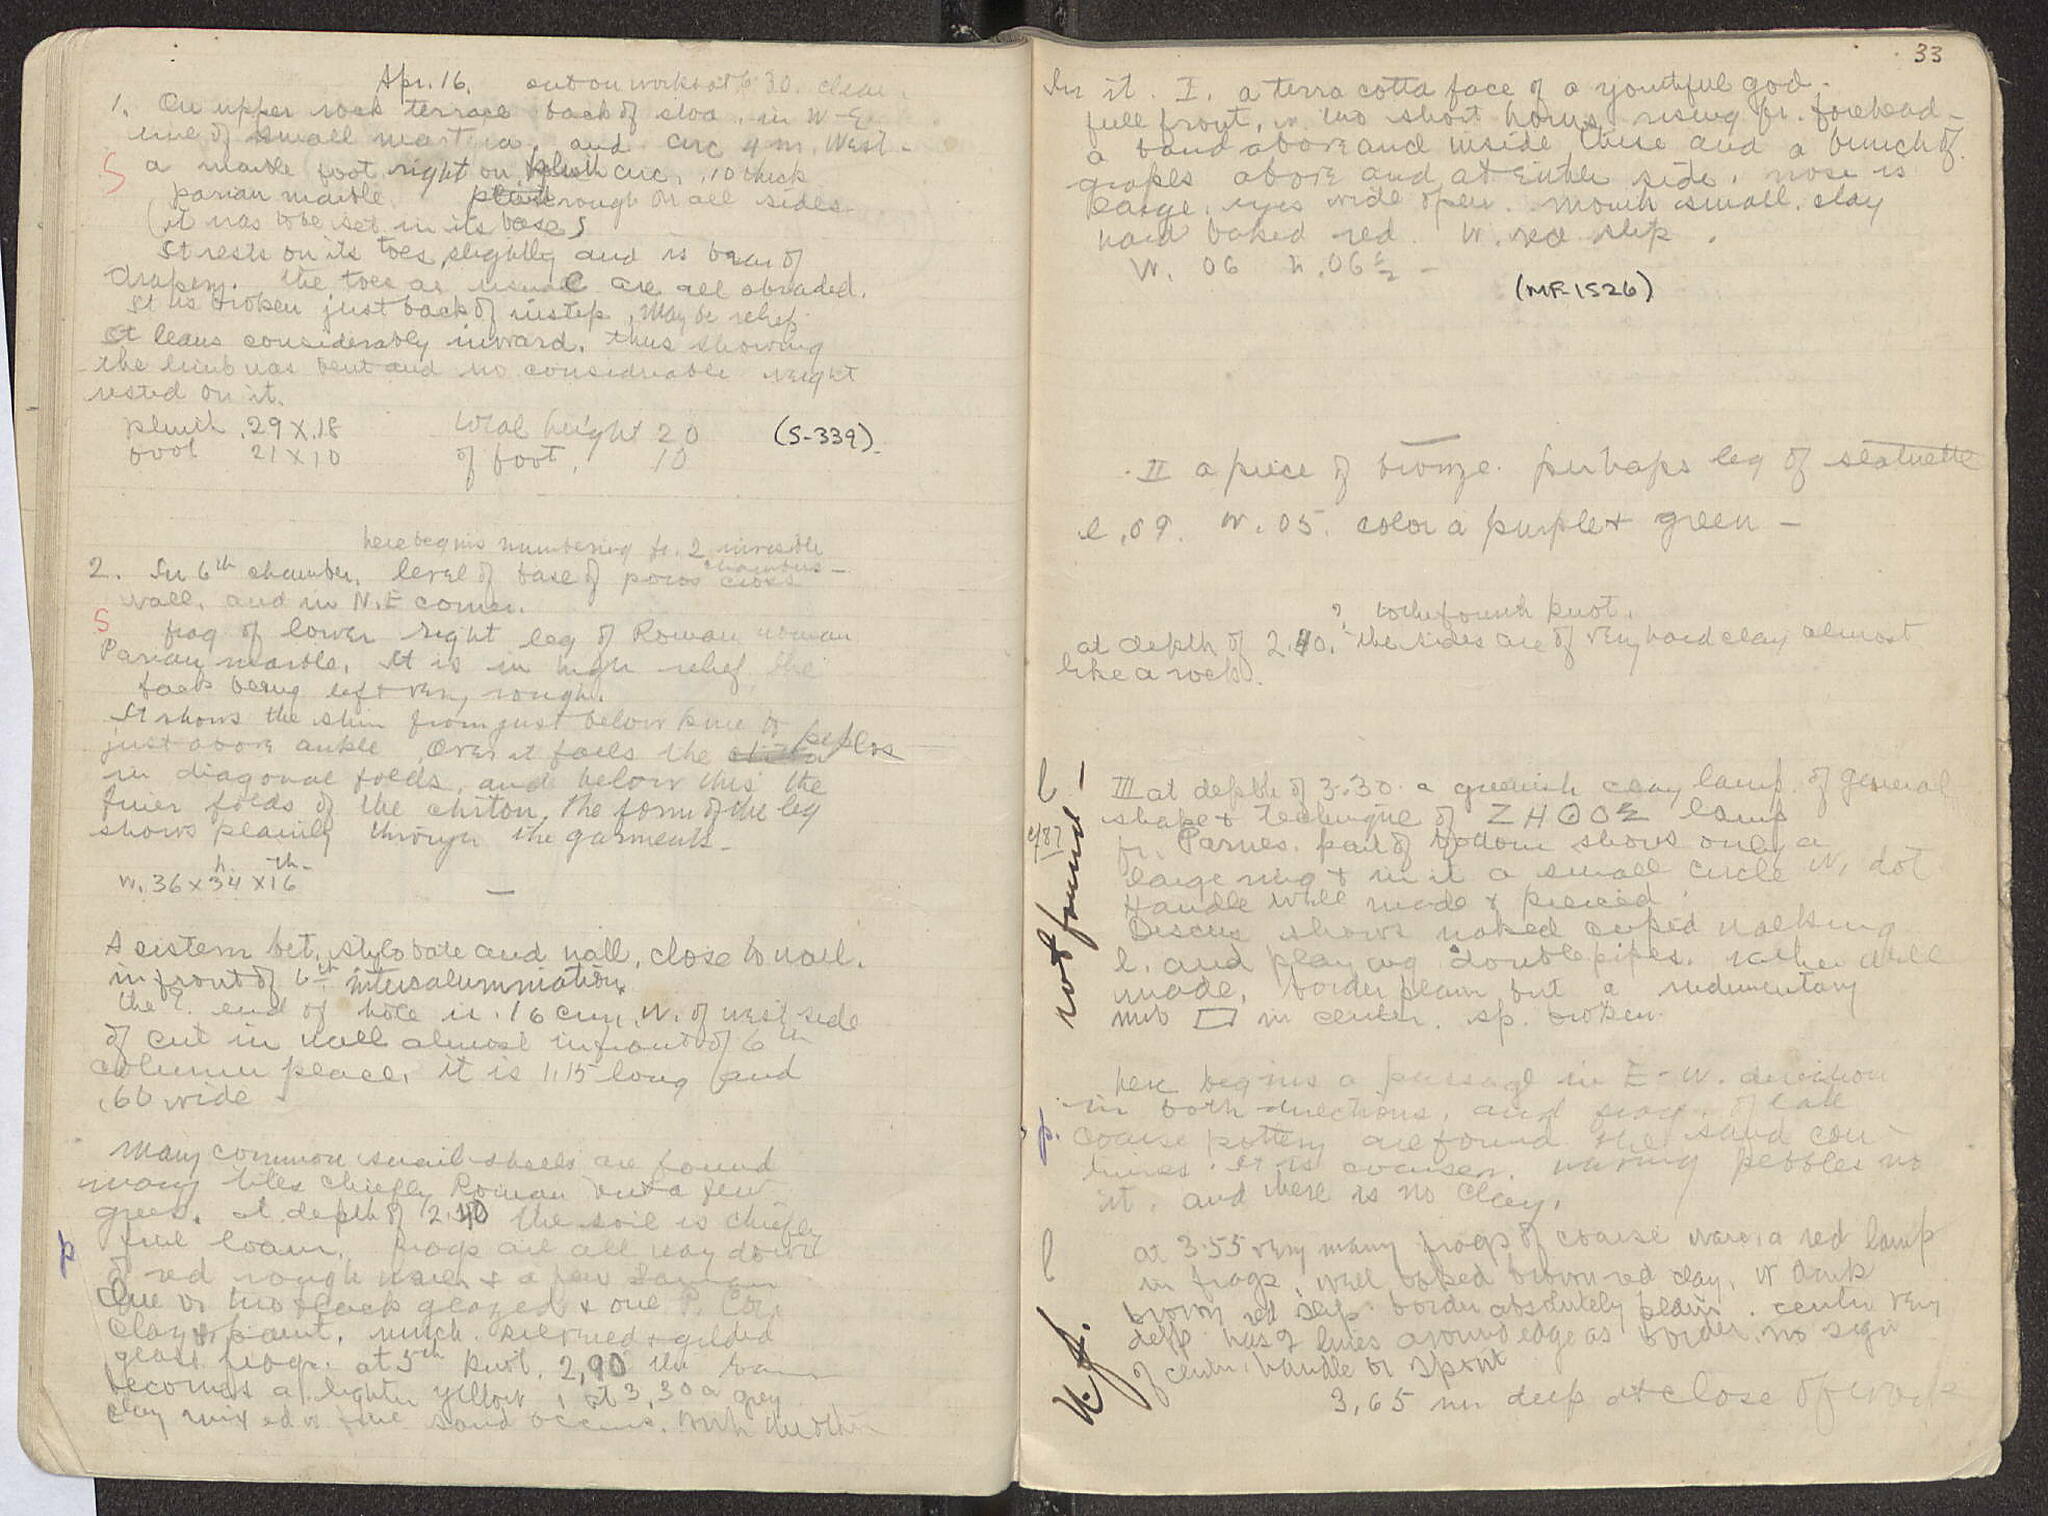 Apr. 16. out on works at 6.30. clear.
1. On upper rock terrace back of stoa, in W-E
line of small and circ 4 m. West
S
a marble foot right on plinth circ. .10 thick
parian marble. rough on all sides
(it was to be set in its base)
It rests on its toes slightly and is bare of
drapery. The toes as usual are all abraded.
It is broken just back of instep, May be relief
It leans considerably inward. thus showing
the limb was bent and no considerable weight
rested on it.
plinth .29 X .18 total height 20 (S-339).
foot 21 X 10 of foot, 10
here begins numbering fr. 2 invisible
chambers -
2. In 6th chamber, level of base of poros cross
wall, and in N.E corner.
S
frag of lower right leg of Roman woman
Parian marble. It is in high relief the
back being left very rough.
It shows the shin from just below knee to
just above ankle. Over it falls the peplos
in diagonal folds, and below this the
finer folds of the chiton. The form of the leg
shows plainly through the garments -
h. th-
w. 36 x 34 x 16
A cistern bet. stylobate and wall, close to wall.
in front of 6th intercolumniation.
the E. end of hole is .16 cm. W. of west side
of cut in wall almost in front of 6th
column place. it is 1.15 long and
.60 wide -
Many common snail shells are found
many tiles chiefly Roman but a few
greek. at depth of 2.40 the soil is chiefly
p
fine loam. frags are all way down
of red rough ware & a few Samian
One or two black glazed & one P. Cor.
clay & paint. much silvered & gilded
glass frags. at 5th knot. 2,90 the loam
becomes a lighter yellow, at 3,30 a grey
clay mixed w fine sand occurs. With the other
33
In it. I. a terra cotta face of a youthful god.
full front, w. two short horns rising fr. forehead -
a band above and inside these and a bunch of
grapes above and at either side. nose is
large. eyes wide open. mouth small. clay
hard baked red. W. red slip.
W. 06 h. .06½ -
(MF-1526)
II a piece of bronze. perhaps leg of statuette
l .09. W. .05. color a purple & green -
? to the fourth knot.
at depth of 2.40. the sides are of very hard clay almost
like a rock.
l
not found -
III at depth of 3.30 a greenish clay lamp. of general
shape & technique of ΖΗΘΟΣ lamp
fr. Parnes. part of bottom shows only a
large ring & in it a small circle W. dot
Handle well made & pierced.
Discus shows naked cupid walking
l. and playing double pipes. rather well
made. border plain but a rudimentary
▭ in center. sp. broken.
here begins a passage in E-W. direction
in both directions. and frags. of late
p.
coarse pottery are found. The sand con-
tinues. It is coarser. having pebbles in
it. and there is no clay.
l
at 3.55 very many frags of coarse ware. a red lamp
in frags. well baked brown red clay. W dark
brown red slip. border absolutely plain. center very
deep has 2 lines around edge as border. no sign
n.f.
of center, handle or spout
3,65 m deep at close of work